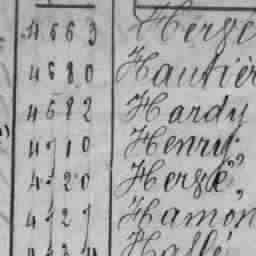 4663 Hergé
4680 Hautièr
4682 Hardy
4710 Henry
4720 Hergé
4727 Hamon
Hallé